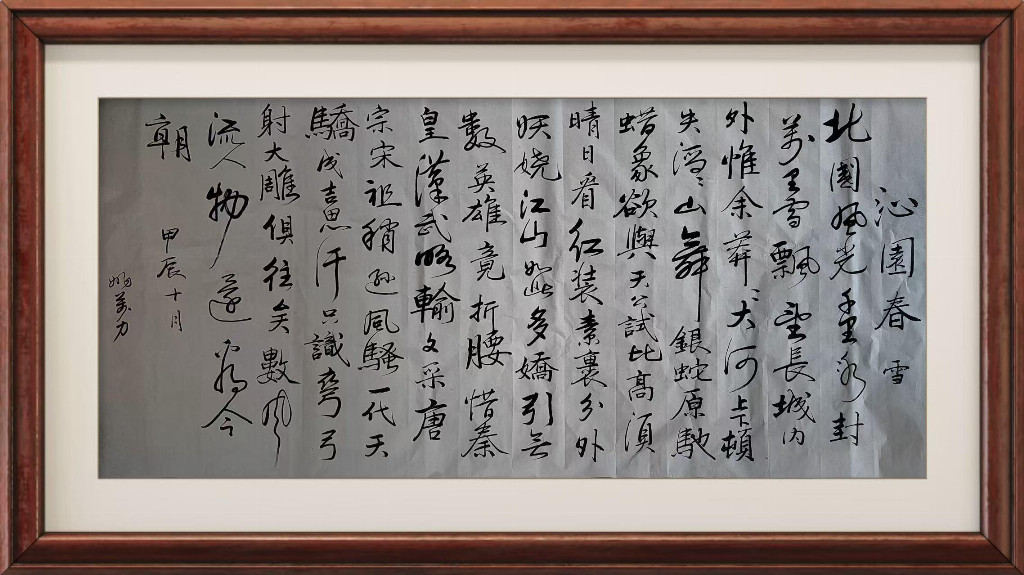 沁園春 雪
北國風光千里冰封
萬里雪飄望長城內
外惟余莽〻大河上下頓
失滔〻山舞銀蛇原馳
蜡象欲與天公試比高須
晴日看红装素裹分外
妖娆江山如此多嬌引无
數英雄竟折腰惜秦
皇漢武略輸文采唐
宗宋祖稍逊风騷一代天
驕成吉思汗只識彎弓
射大雕俱往矣數风
流人物还看今
朝
甲辰十月
万力